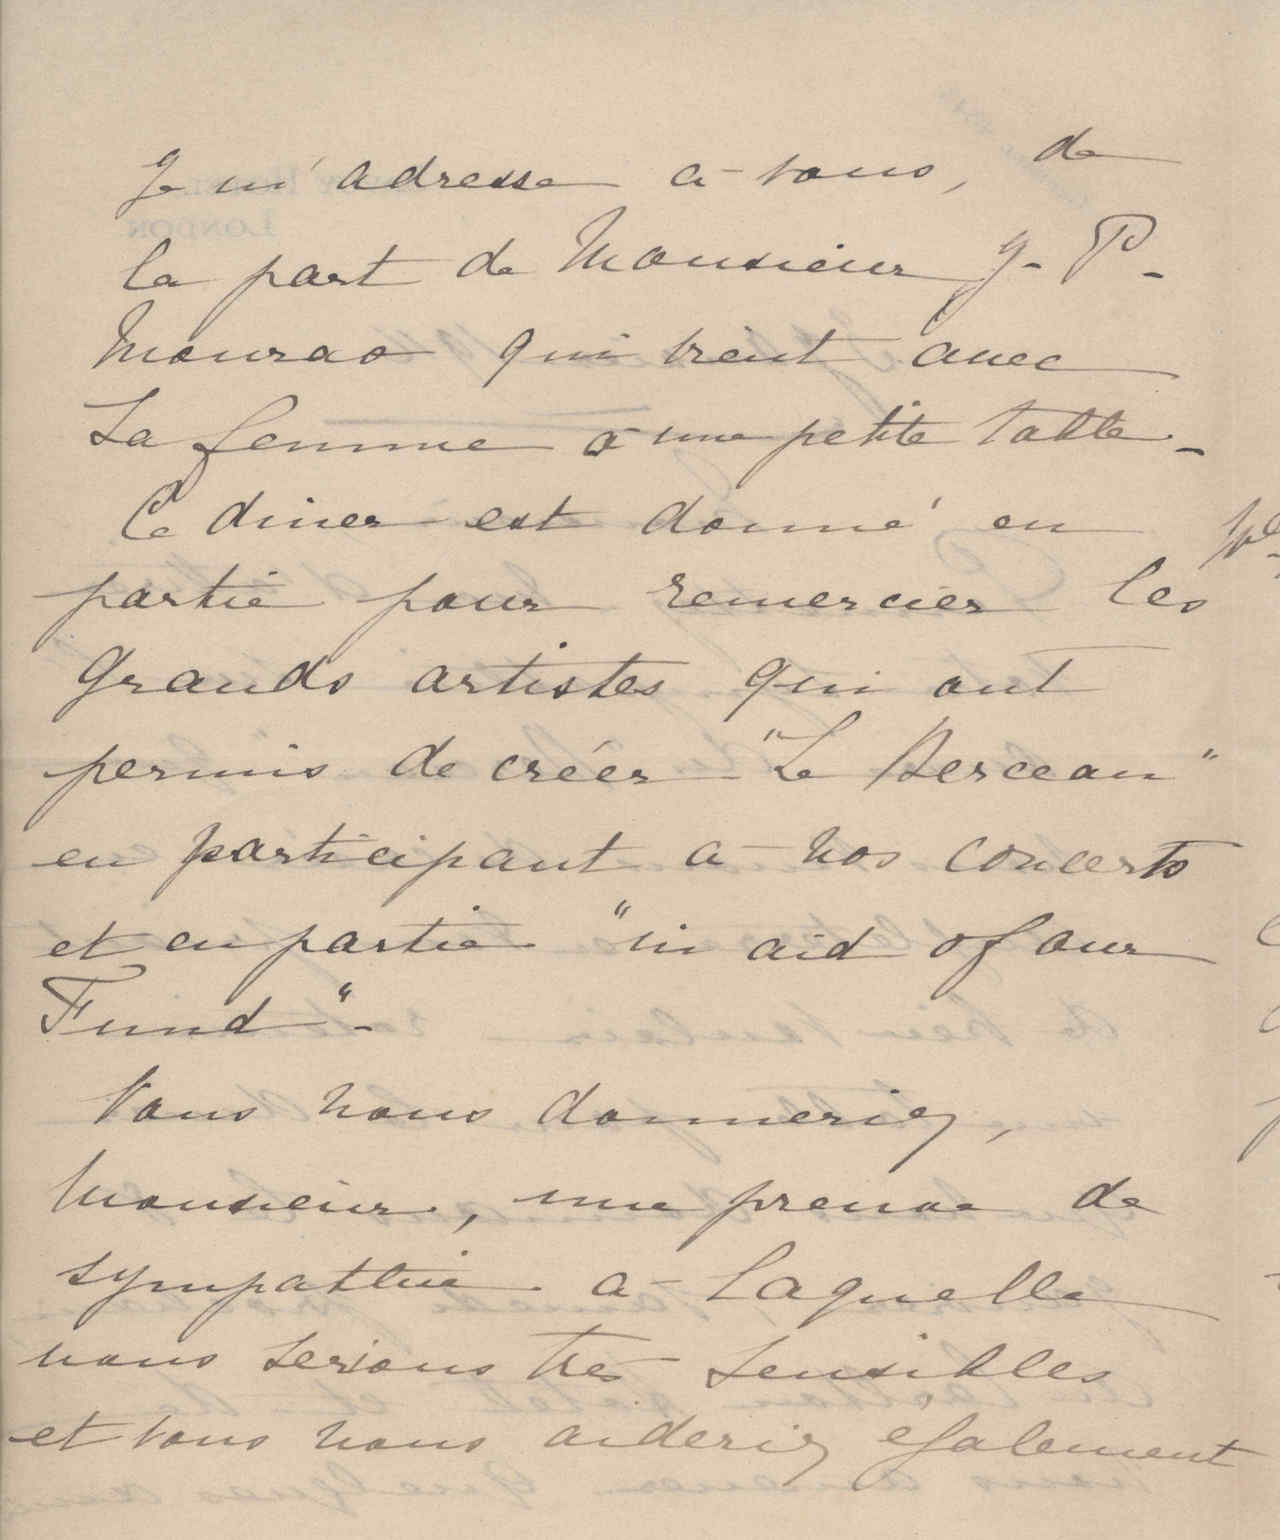 Je m'adresse à vous, de
la part de Monsieur J. P.
Mourao qui vient avec
sa femme à une petite table.
Ce diner est donné en
partie pour remercier les
grands artistes qui ont
permis de créer "Le Berceau"
en participant à nos concerts
et en partie "in aid of our
Fund".
Vous nous donneriez,
Monsieur, une preuve de
sympathie à laquelle
nous serions très sensibles
et vous nous aideriez également